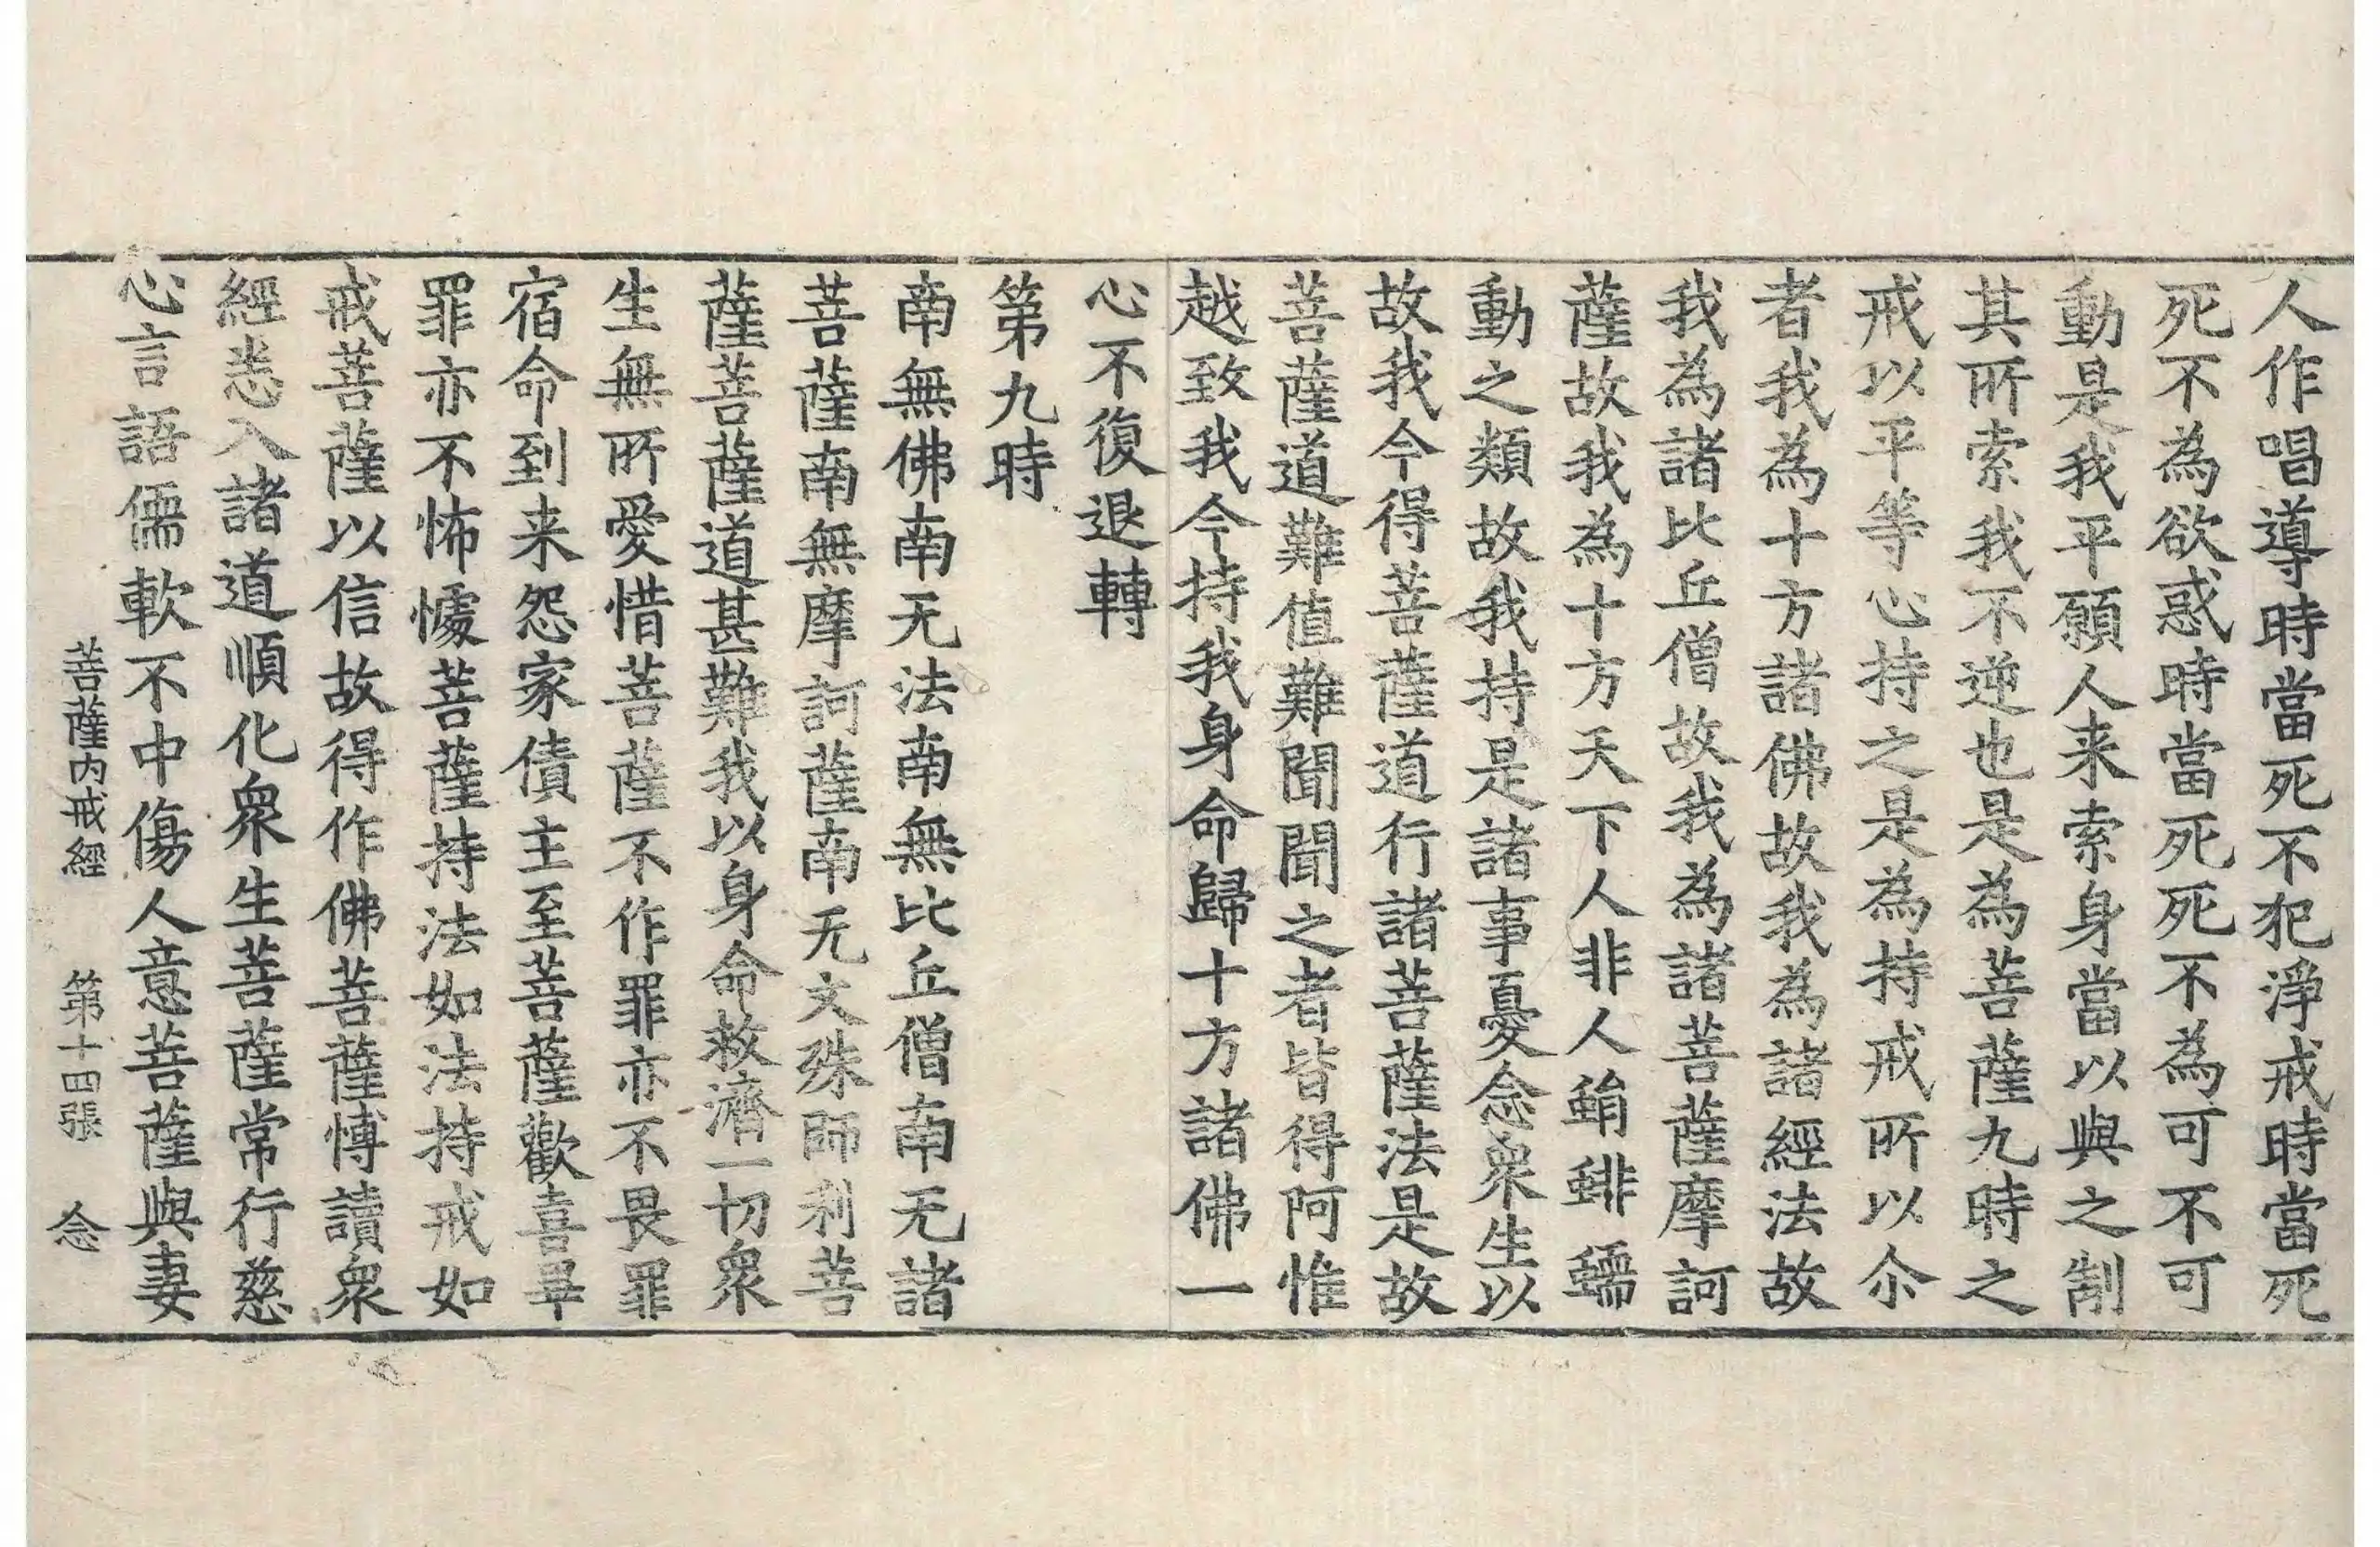 人作唱導時當死不犯淨戒時當死
死不為欲惑時當死死不為可不可
動是我平願人来索身當以與之制
其所索我不逆也是為菩薩九時之
戒以平等心持之是為持戒所以尒
者我為十方諸佛故我為諸經法故
我為諸比丘僧故我為諸菩薩摩訶
薩故我為十方天下人非人蜎蜚蠕
動之類故我持是諸事憂念衆生以
故我今得菩薩道行諸菩薩法是故
菩薩道難值難聞聞之者皆得阿惟
越致我今持我身命歸十方諸佛一
心不復退轉
第九時
南無佛南无法南無比丘僧南无諸
菩薩南無摩訶薩南无文殊師利菩
薩菩薩道甚難我以身命救濟一切衆
生無所愛惜菩薩不作罪亦不畏罪
宿命到来怨家債主至菩薩歡喜畢
罪亦不怖懅菩薩持法如法持戒如
戒菩薩以信故得作佛菩薩博讀衆
經悉入諸道順化衆生菩薩常行慈
心言語儒軟不中傷人意菩薩與妻
菩薩内戒經　第十四張　念